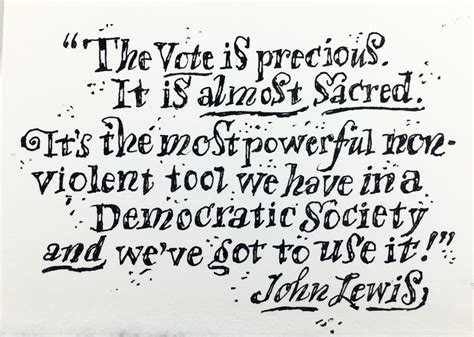 “The Vote is precious.
It is almost sacred.
It's the most powerful non-
violent tool we have in a
Democratic Society
and we've got to use it!”
John Lewis